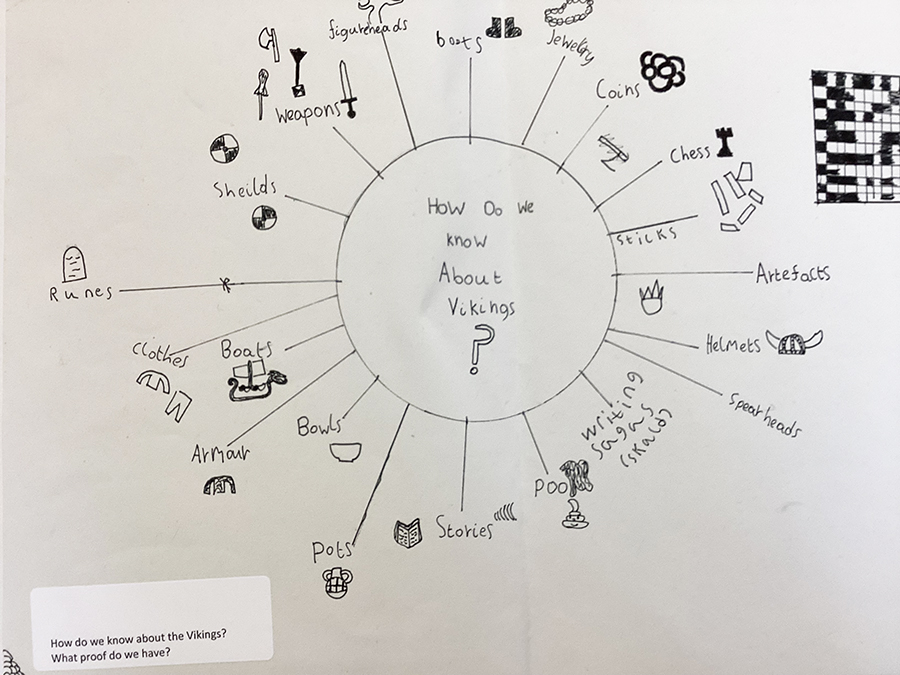 figureheads
boots
Jewelry
Coins
Weapons
Chess
Sheilds
sticks
HOW DO We
know
About
Vikings
?
Artefacts
Runes
Helmets
Clothes
Boats
Spearheads
writing
sagas
(skald)
Armour
Bowls
Poo
Stories
Pots
How do we know about the Vikings?
What proof do we have?